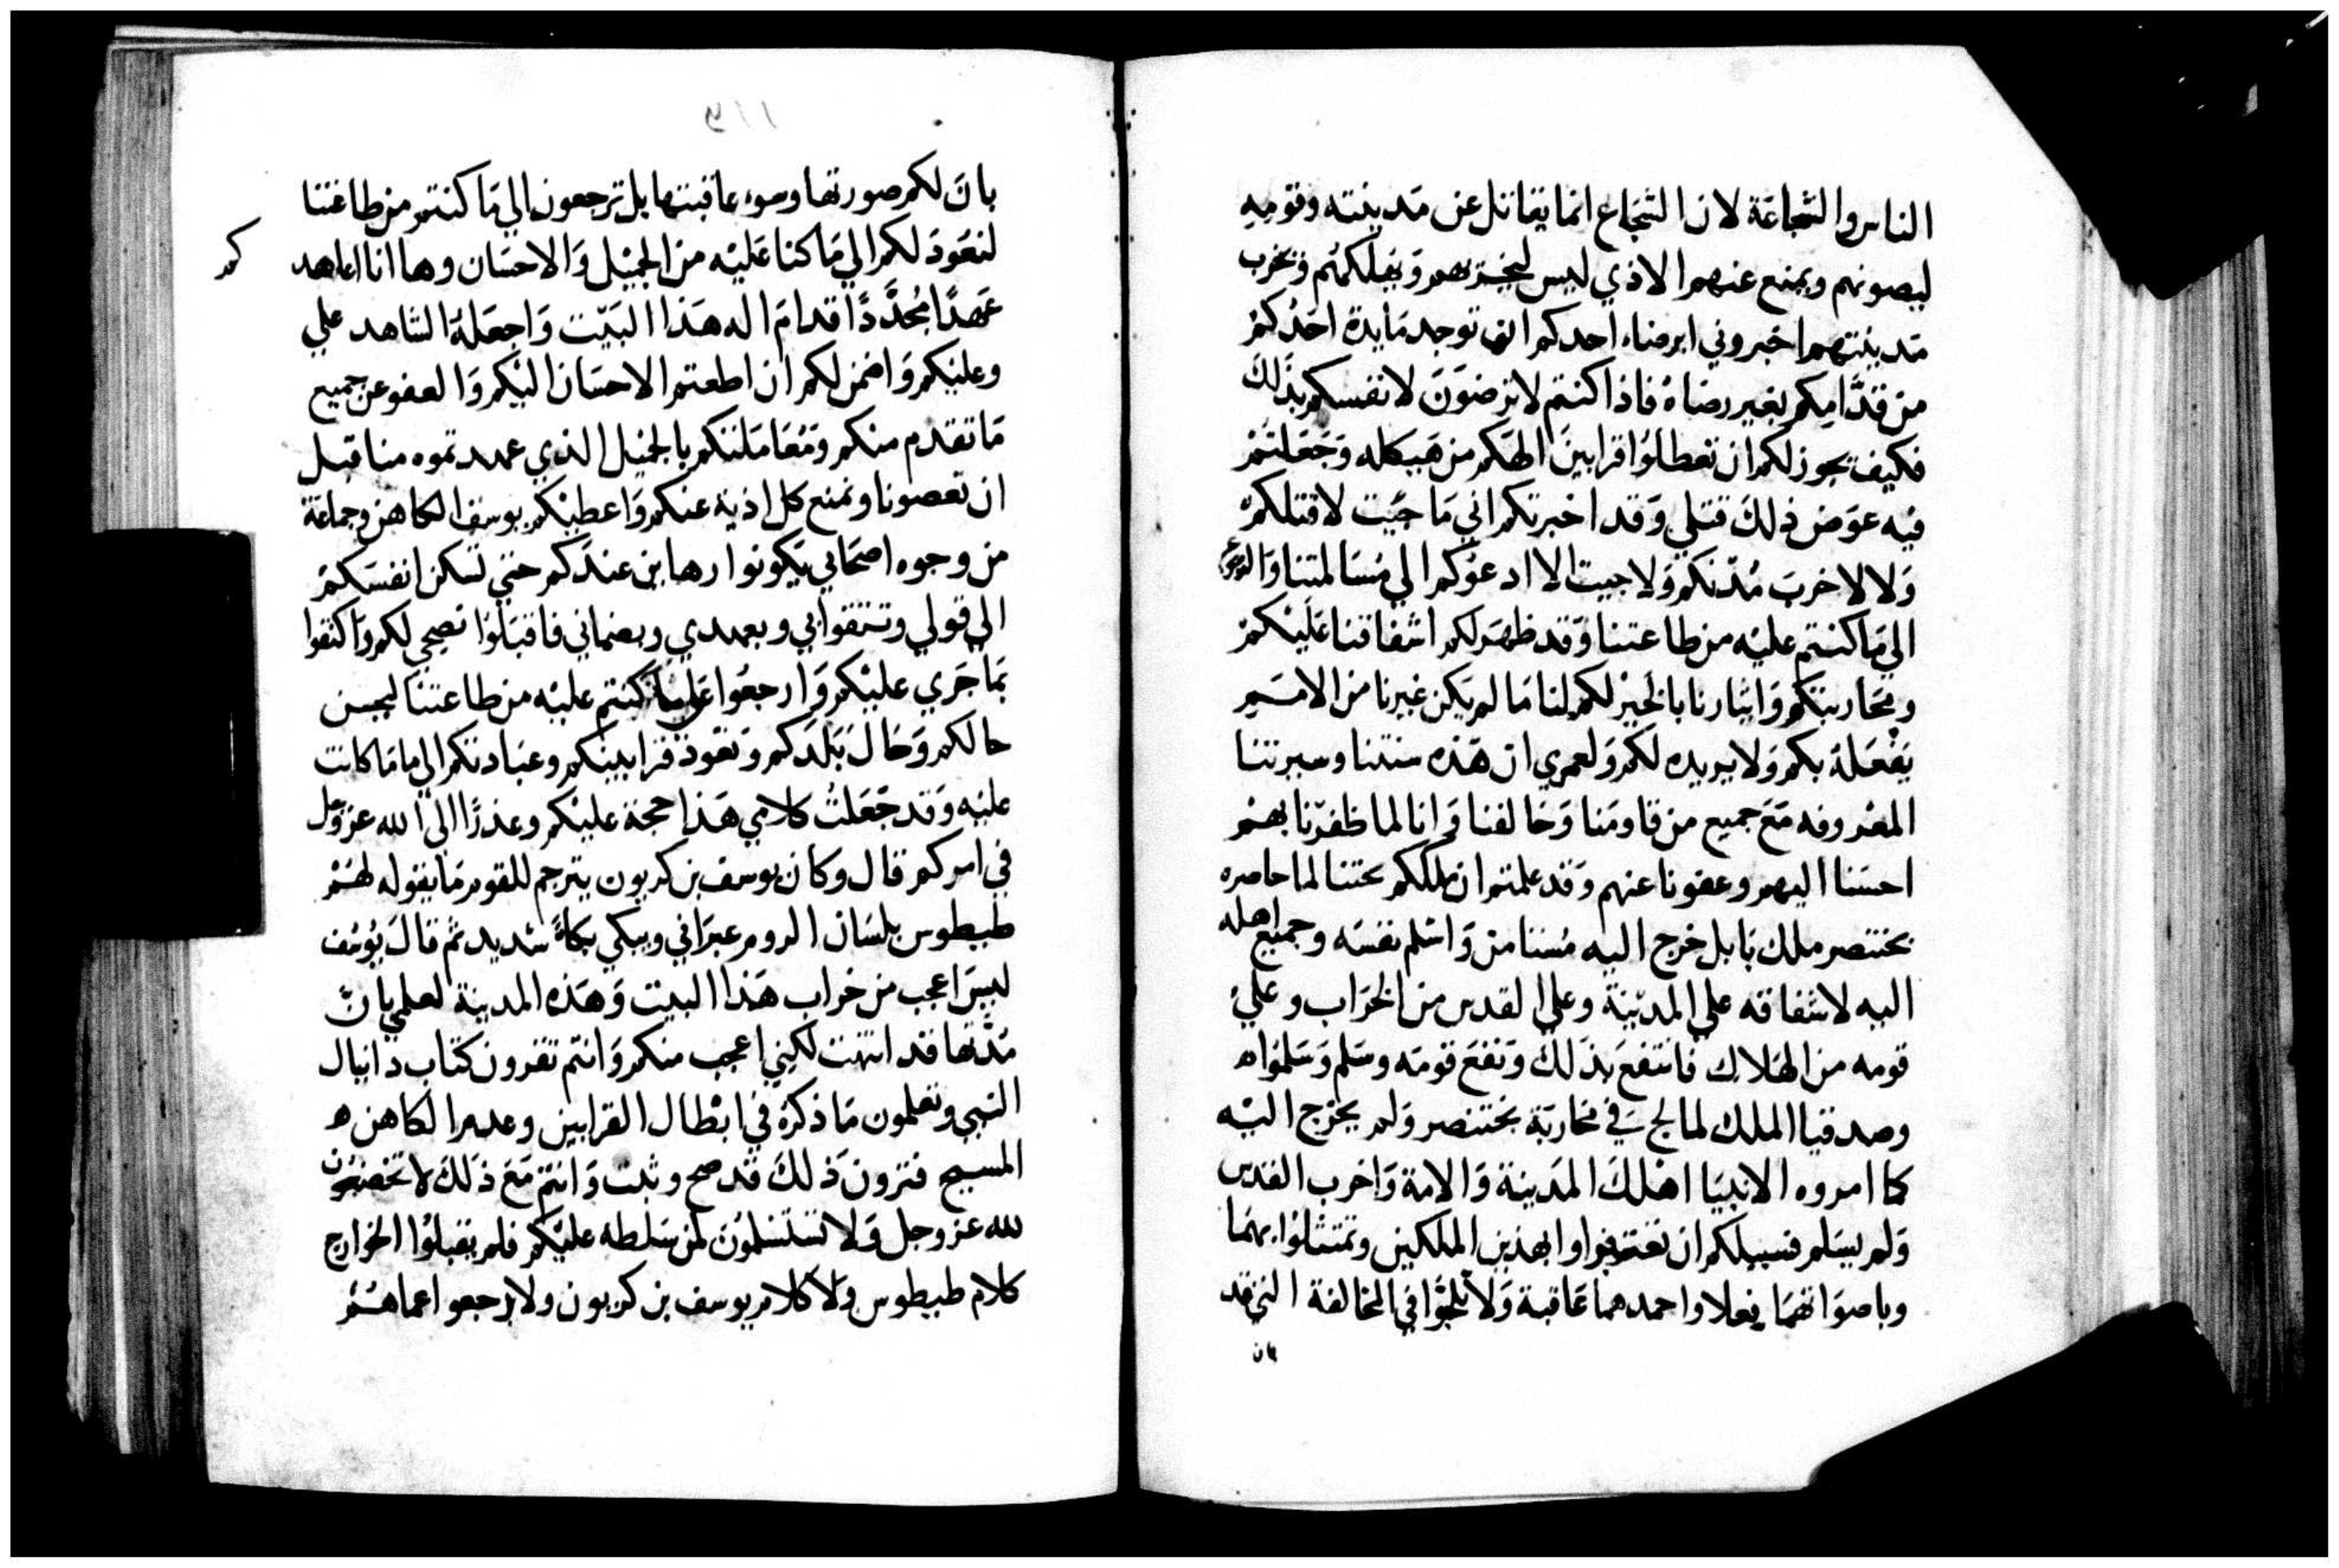 الناس والشجاعة لان الشجاع انما يقاتل عن مدينته وقومه
ليصونهم ويمنع عنهم الاذي ليس ليخسرهم ويهلكهم وتخرب
مدينتهم اخبروني ايرضاء احدكم ان توجد مايدة احدكم
من قدامكم بغير رضاه فاذا كنتم لا ترضون لانفسكم بذلك
فكيف يجوز لكم ان تعطلوا قرابين الهكم من هيكله وجعلتم
فيه عوض ذلك قتلي وقد اخبرتكم اني ما جيت لاقتلكم
ولا لاخرب مدنكم ولا جيت الا ادعوكم الي مسالمتنا
الي ما كنتم عليه من طاعتنا وقد ظهر لكم اشفاقنا عليكم
ومحاربتكم وايثارنا بالخير لكم لنا ما لم يكن غيرنا من الامم
يفعله بكم ولا يريده لكم ولعمري ان هذه سنتنا وسيرتنا
المعروفه مع جميع من قاومنا وخالفنا وانا لما ظفرنا بهم
احسنا اليهم وعفونا عنهم وقد علمتم ان ملككم يختنا لما حاصره
بختنصر ملك بابل خرج اليه مستامن واسلم نفسه وجميع اهله
اليه لاشفاقه علي المدينة وعلي القدس من الخراب وعلي
قومه من الهلاك فانتفع بذلك ونفع قومه وسلم وسلموا
وصدقيا الملك لما لج في محاربة بختنصر ولم يخرج اليه
كما امروه الانبيا اهلك المدينة والامة واخرب القدس
ولم يسلم فسبيلكم ان تعتبروا بهذين الملكين وتمتثلوا بهما
وباصوابهما فعلا واحمدهما عاقبة ولا تلجوا في المخالفة التي قد
بان
بان لكم صورتها وسوء عاقبتها بل ترجعون الي ما كنتم من طاعتنا
لنعود لكم الي ما كنا عليه من الجميل والاحسان وها انا اعاهد
كم
عهدا مجددا قدام اله هذا البيت واجعله الشاهد علي
وعليكم واضمن لكم ان اطعتم الاحسان اليكم والعفو عن جميع
ما تقدم منكم ومعاملتكم بالجميل الذي عهدتموه منا قبل
ان تعصونا ونمنع كل اذية عنكم واعطيكم يوسف الكاهن وجماعة
من وجوه اصحابي يكونوا رهاين عندكم حتي تسكن انفسكم
الي قولي وتتقوا بي وبعهدي وبضماني فاقبلوا نصحي لكم واكتفوا
بما جري عليكم وارجعوا علي ما كنتم عليه من طاعتنا ليحسن
حالكم وحال بلدكم وتعود قرابينكم وعبادتكم الي ما ما كانت
عليه وقد جعلت كلامي هذا حجة عليكم وعذرا الي الله عز وجل
في امركم قال وكان يوسف بن كريون يترجم للقوم ما يقوله لهم
طيطوس بلسان الروم عبراني ويبكي بكاء شديد ثم قال يوسف
ليس اعجب من خراب هذا البيت وهذه المدينة لعلمي بان
مدتها قد انتهت لكني اعجب منكم وانتم تقرون كتاب دانيال
النبي وتعلمون ما ذكره في ابطال القرابين وعدم الكاهن
المسيح فترون ذلك قد صح وثبت وانتم مع ذلك لا تخضعون
لله عز وجل ولا تستسلمون لمن سلطه عليكم فلم يقبلوا الخوارج
كلام طيطوس ولا كلام يوسف بن كريون ولا رجعوا عما هم